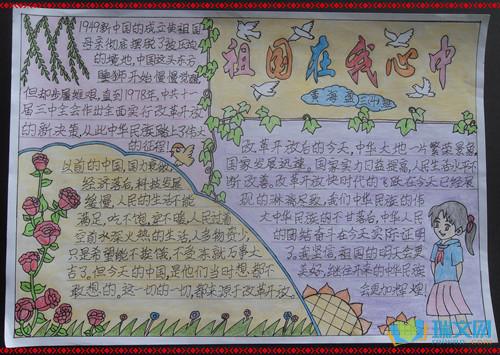 祖国在我心中
黄海盈 三(4)班
1949新中国的成立使祖国
母亲彻底摆脱了被压迫
的境地,中国这头东方
睡狮开始慢慢觉醒
但却步履维艰,直到1978年,中共十一
届三中全会作出全面实行改革开放
的新决策,从此中华民族踏上了伟大
的征程!
以前的中国,国力衰败,
经济落后,科技发展
缓慢,人民的生活不能
满足,吃不饱,穿不暖,人民过着
空前水深火热的生活,人多物资少,
只是希望能不挨饿,不受冻就万事大
吉了,但今天的中国,是他们当时想都不
敢想的。这一切的一切,都来源于改革开放。
改革开放后的今天,中华大地一片繁荣景象,
国家发展迅速。国家实力日益提高,人民生活水平不
断改善。改革开放使时代的飞跃在今天已经展
现的淋漓尽致,我们中华民族的伟
大中华民族的不甘落后,中华人民
的团结奋斗在今天实际证明
了。我坚信,祖国的明天会更
美好,继往开来的中华民族
会更加辉煌!
瑞文网